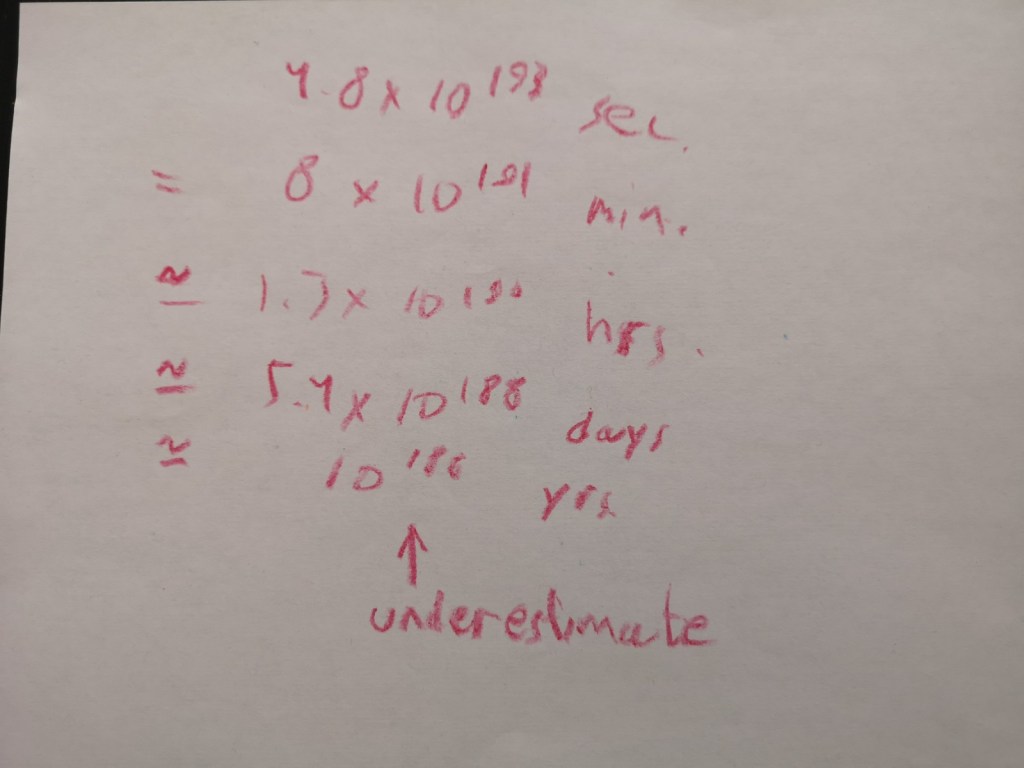 4.8 × 10¹⁹³ sec.
= 8 × 10¹⁹¹ min.
≃ 1.3 × 10¹⁹⁰ hrs.
≃ 5.4 × 10¹⁸⁸ days
≃ 10¹⁸⁶ yrs
↑
underestimate